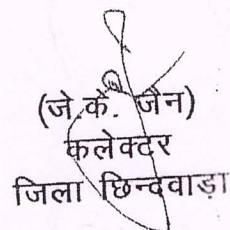 (जे के. जैन)
कलेक्टर
जिला छिन्दवाड़ा